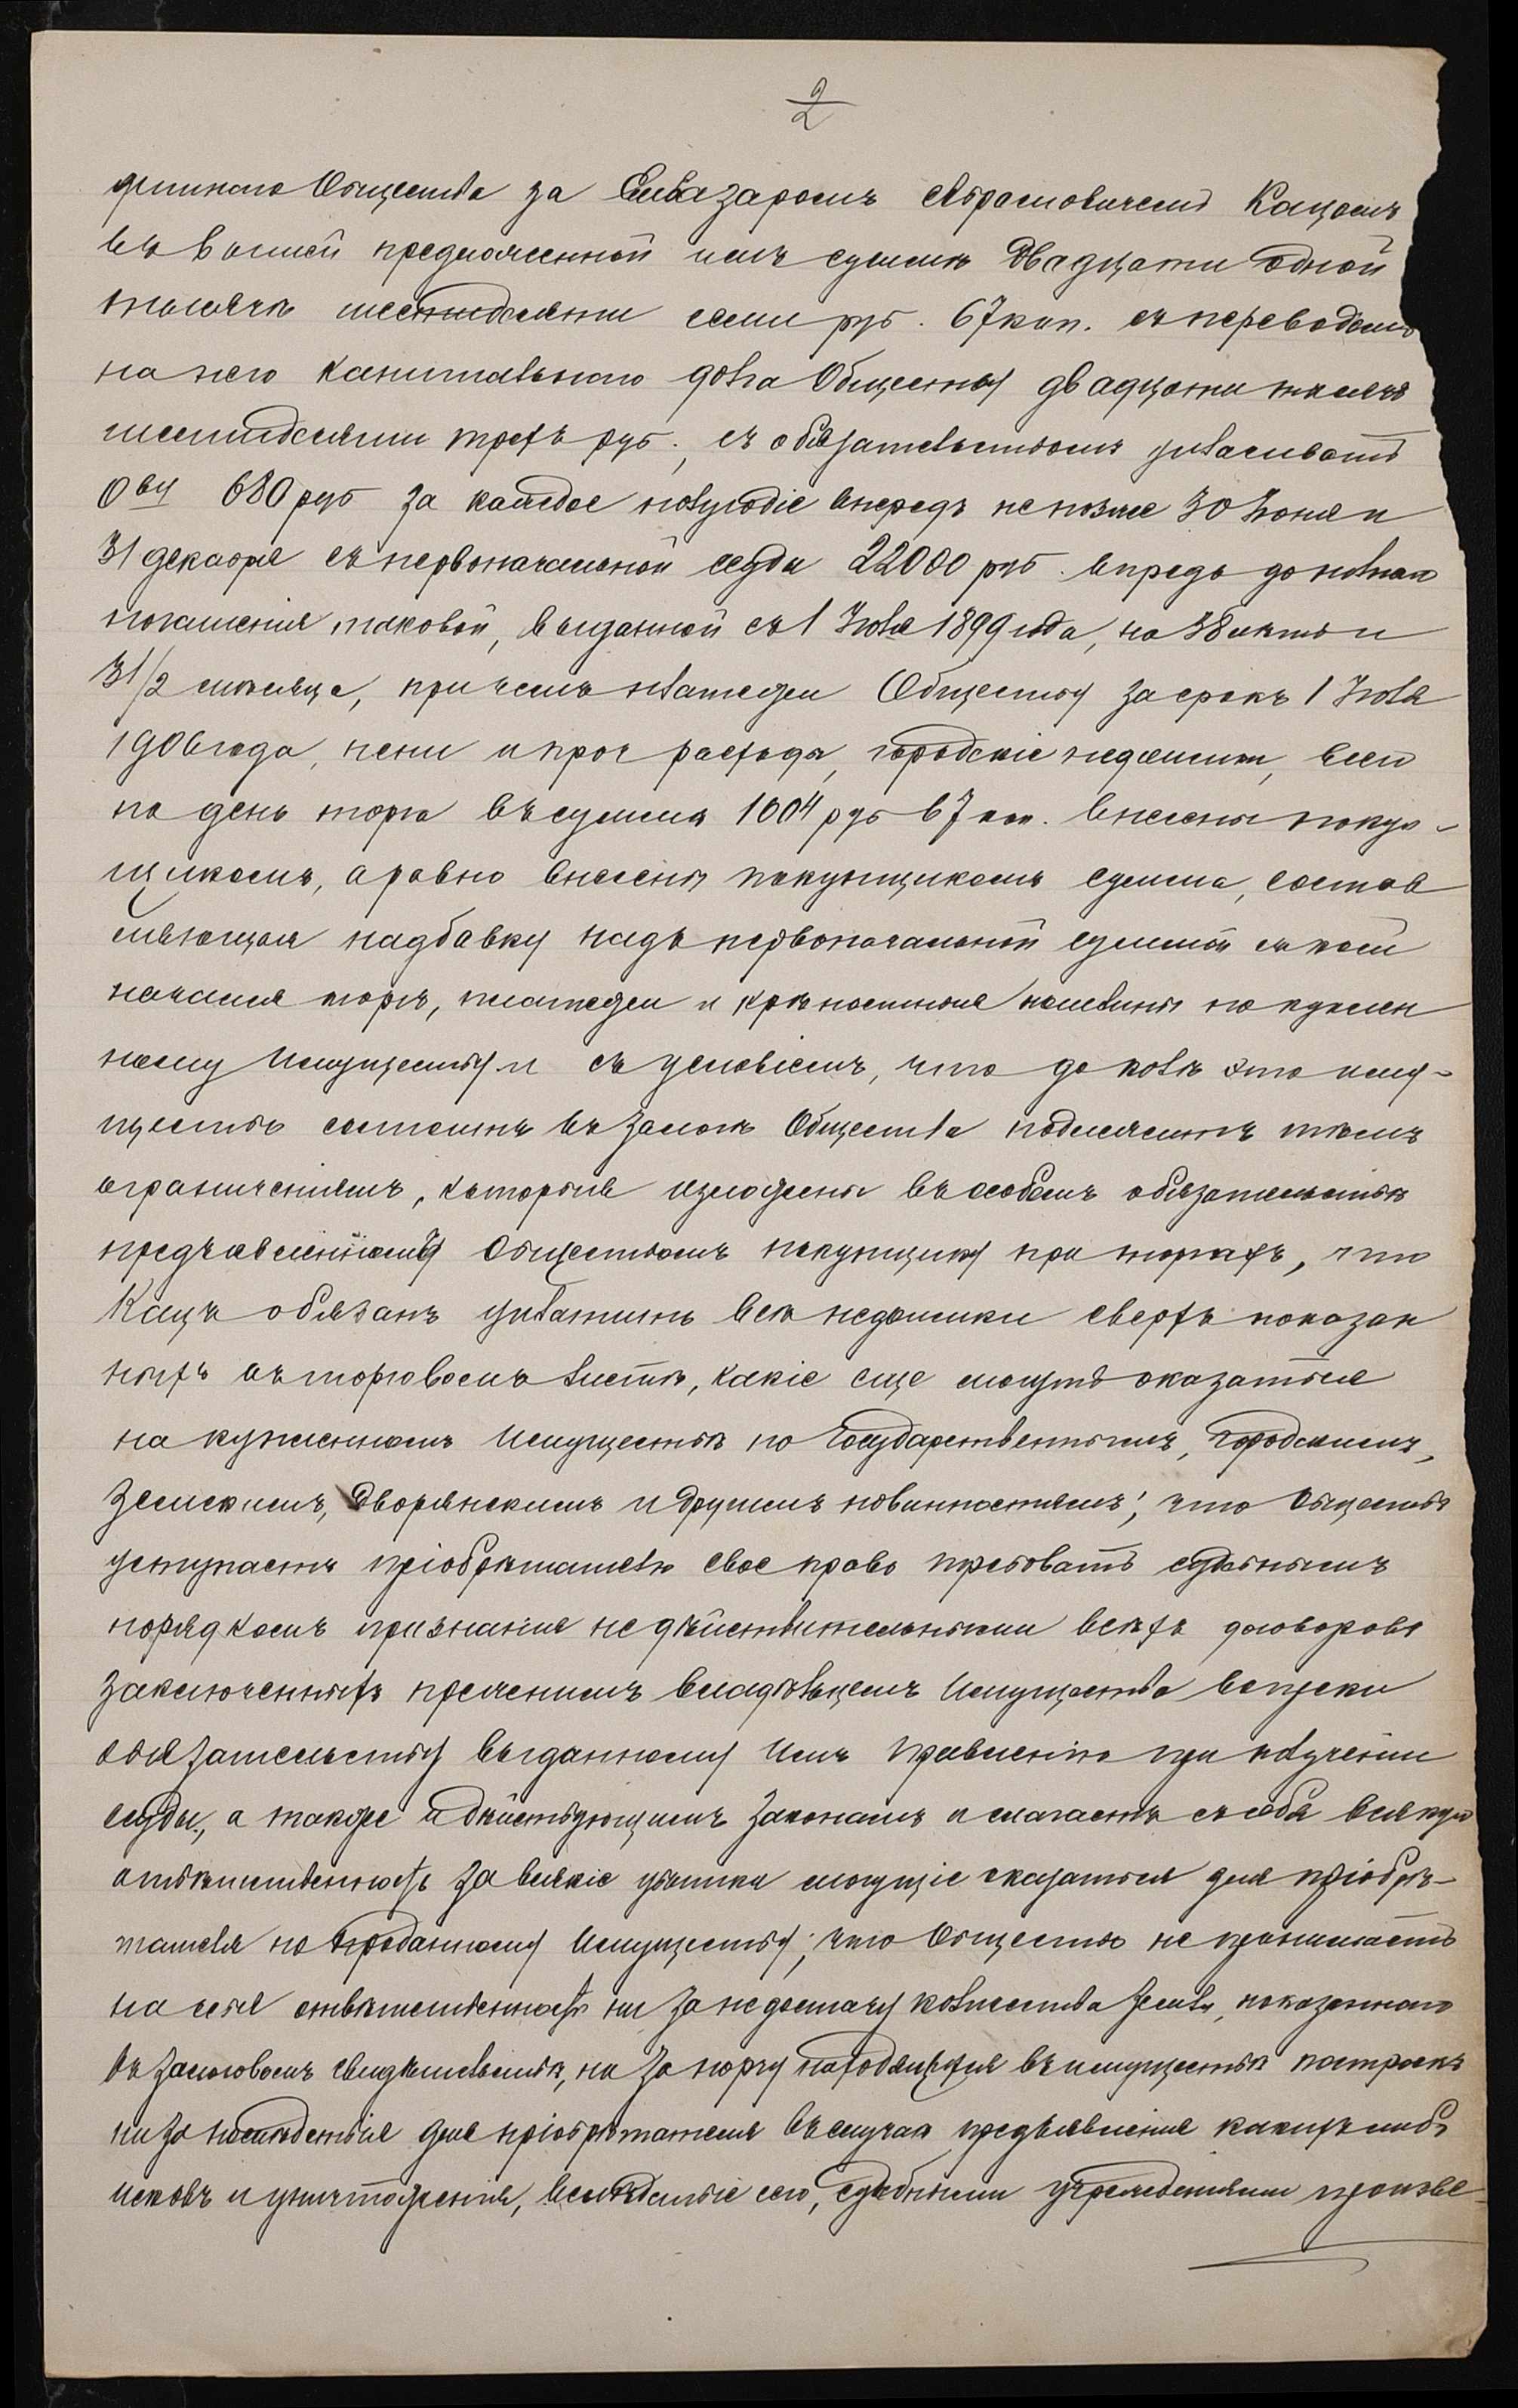 2
дитнаго Общества за Елеазаромъ Абрамовичемъ Кацомъ
въ высшей предложенной имъ суммѣ двадцати одной
тысячѣ шестидесяти семи руб. 67 коп. съ переводомъ
на него капитальнаго долга Обществу двадцати тысячъ
шестидесяти трехъ руб., съ обязательствомъ уплачивать
О-ву 680 руб за каждое полугодіе впередъ не позже 30 Іюня и
31 декабря съ первоначальной ссуды 22000 руб. впредь до полнаго
погашенія таковой, выданной съ 1 Іюля 1899 года, на 38 лѣтъ и
3 1/2 мѣсяца, причемъ платежи Обществу за срокъ 1 Іюля
1906 года, пени и проч расходы, городскіе недоимки, всего
по день торга въ суммѣ 1004 руб 67 коп. внесены покуп-
щикомъ, а равно внесена покупщикомъ сумма, состав
ляющая надбавку надъ первоначальной суммой съ коей
начался торгъ, платежи и крѣпостныя пошлины по куплен
ному Имуществу и съ условіемъ, что доколѣ это иму-
щество состоитъ въ залогѣ Общества подлежитъ тѣмъ
ограниченіямъ, которыя изложены въ особомъ обязательствѣ
предъявленному Обществомъ покупщику при торгахъ, что
Кацъ обязанъ уплатить всѣ недоимки сверхъ показан
ныхъ въ торговомъ листѣ, какіе еще могутъ оказаться
на купленномъ Имуществѣ по Государственнымъ, Городскимъ,
Земскимъ, Дворянскимъ и другимъ повинностямъ; что Общество
уступаетъ пріобрѣтателю свое право требовать судебнымъ
порядкомъ признанія недѣйствительными всѣхъ договоровъ
заключенныхъ прежнимъ владѣльцемъ Имущества вопреки
обязательству выданному имъ Правленію при полученіи
ссуды, а также и дѣйствующимъ законамъ и слагаетъ съ себя всякую
отвѣтственность за всякіе убытки могущіе оказаться для пріобрѣ-
тателя по проданному Имуществу; что Общество не принимаетъ
на себя отвѣтственность ни за недостачу количества земли, показаннаго
въ залоговомъ свидѣтельствѣ, ни за порчу находящихся въ имуществѣ построекъ
ни за послѣдствія для пріобрѣтателя въ случаѣ предъявленія какихъ либо
исковъ и уничтоженія, вслѣдствіе сего, судебными учрежденіями произве-